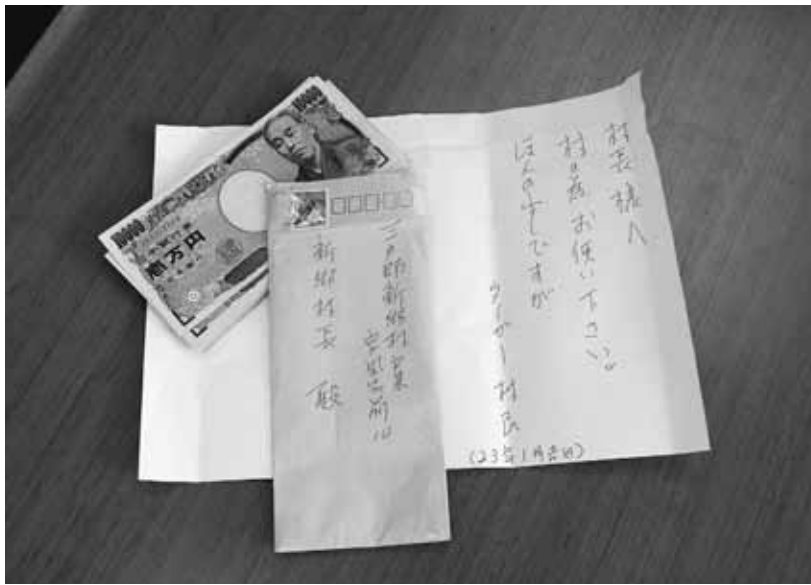 村長様へ
村の為お使い下さい。
ほんの少しですが
タイガー村民
(23年1月吉日)
三戸郡新郷村戸来
字風呂前10
新郷村長 殿
10000
10000
日本銀行券
壱万円
日本銀行